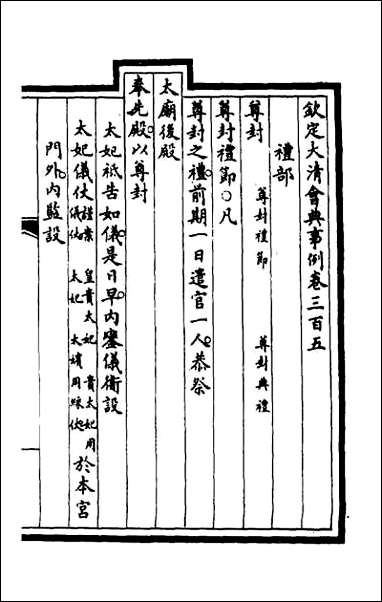 欽定大清會典事例卷三百五
禮部
尊封 尊封禮節 尊封典禮
尊封禮節○凡
尊封之禮前期一日遣官一人恭祭
太廟後殿
奉先殿以尊封
太妃祗告如儀是日早內鑾儀衛設
太妃儀仗謹案皇貴太妃貴太妃用儀仗太妃太嬪用綵仗於本宮
門外內監設